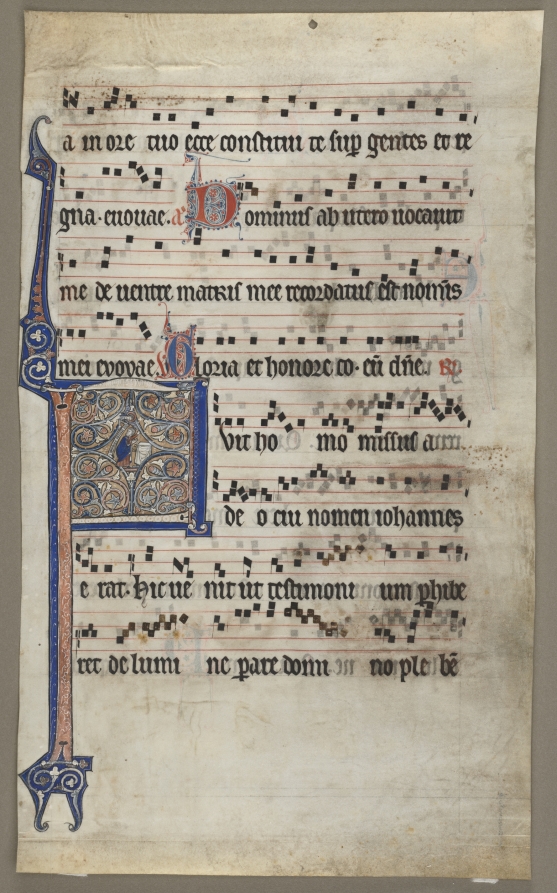 a in ore tuo ecce constitui te sup gentes et re
gna. euouae. a Dominus ab utero uocauit
me de uentre matris mee recordatus est nominis
mei evovae. V Gloria et honore co. eu dñe. R.
Uit ho mo missus a
de o cui nomen iohannes
e rat. Hic ue nit ut testimoni um phibe
ret de lumi ne parare domi no ple bē